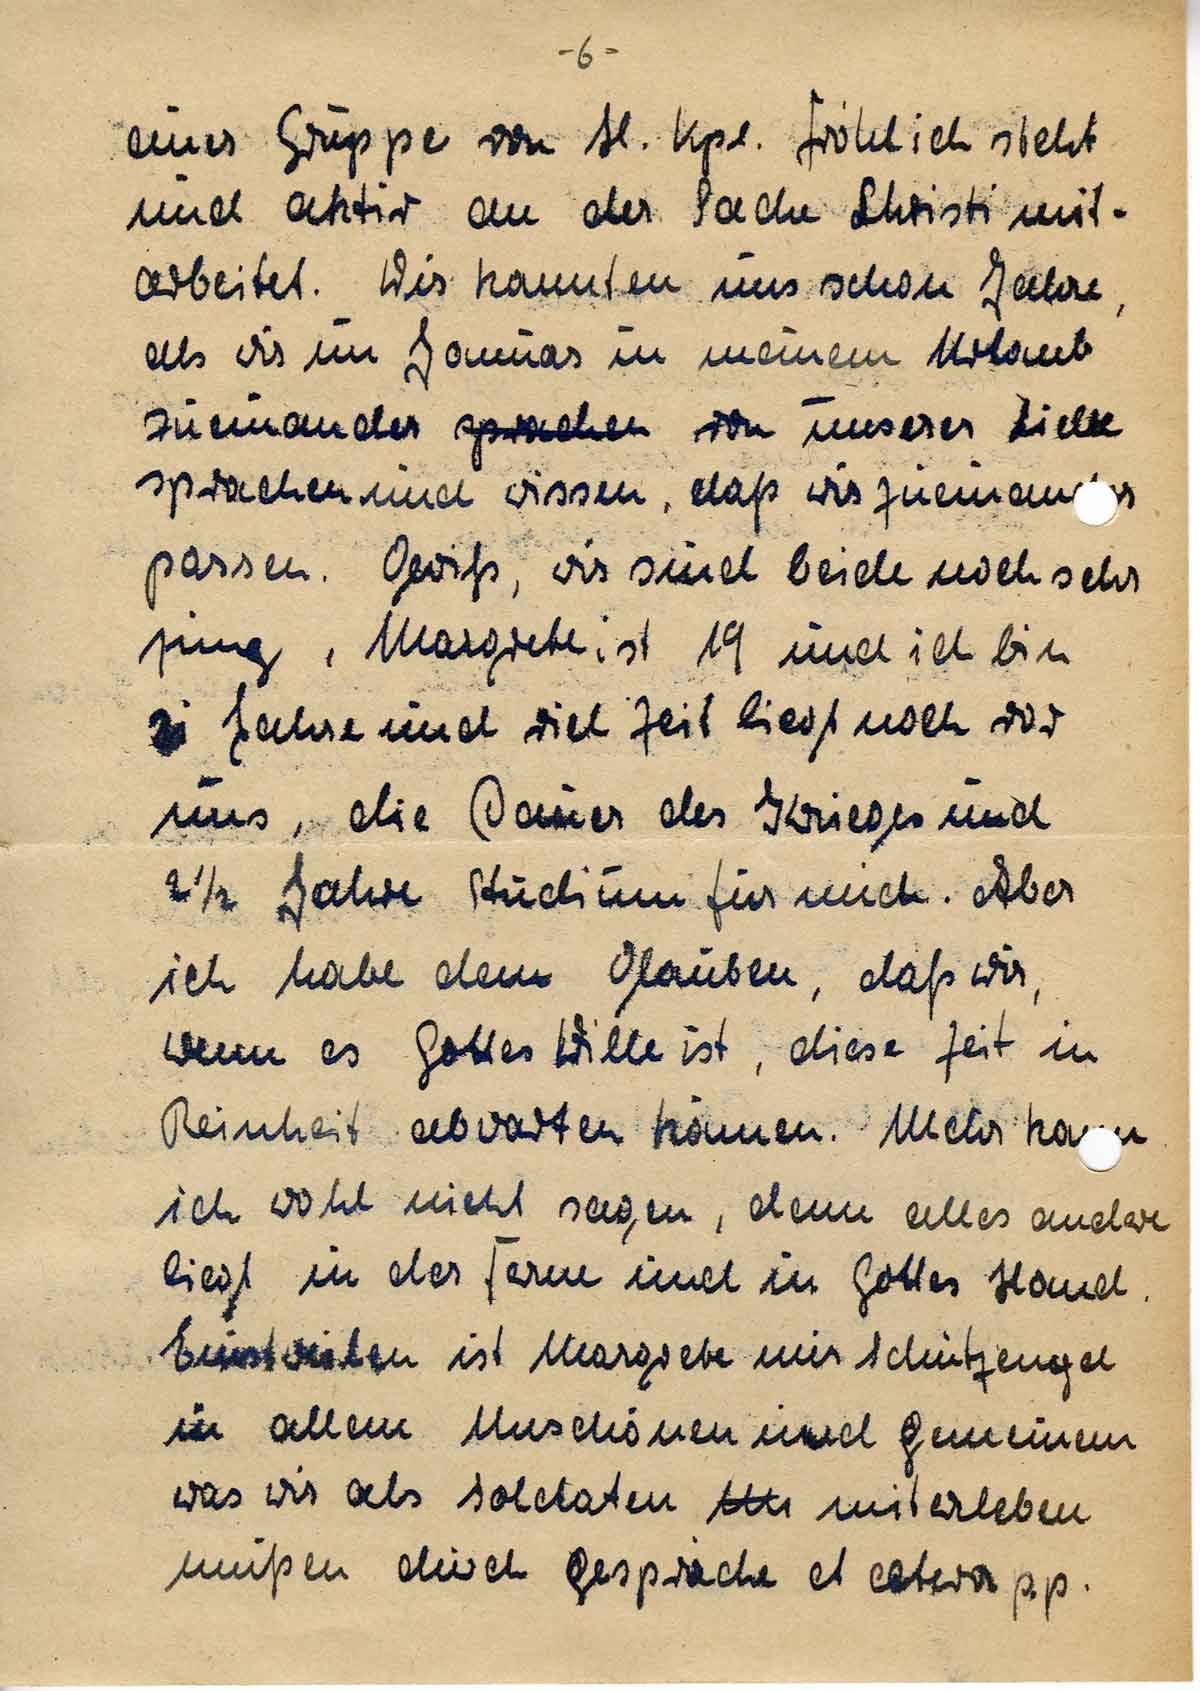 -6-
einer Gruppe von H. Kpl. Fröhlich steht
und aktiv an der Sache Christi mit-
arbeitet. Wir kannten uns schon Jahre,
als wir im Januar in meinem Urlaub
zueinander sprachen von unserer Liebe
sprachen und wissen, daß wir zueinander
passen. Gewiß, wir sind beide noch sehr
jung, Margrete ist 19 und ich bin
21 Jahre und viel Zeit liegt noch vor
uns, die Dauer des Krieges und
2 1/2 Jahre Studium für mich. Aber
ich habe den Glauben, daß wir,
wenn es Gottes Wille ist, diese Zeit in
Reinheit abwarten können. Mehr kann
ich wohl nicht sagen, denn alles andere
liegt in der Ferne und in Gottes Hand.
Einstweilen ist Margrete mir Schutzengel
in allem Unschönen und Gemeinem
was wir als Soldaten miterleben
müßen durch Gespräche et cetera pp.